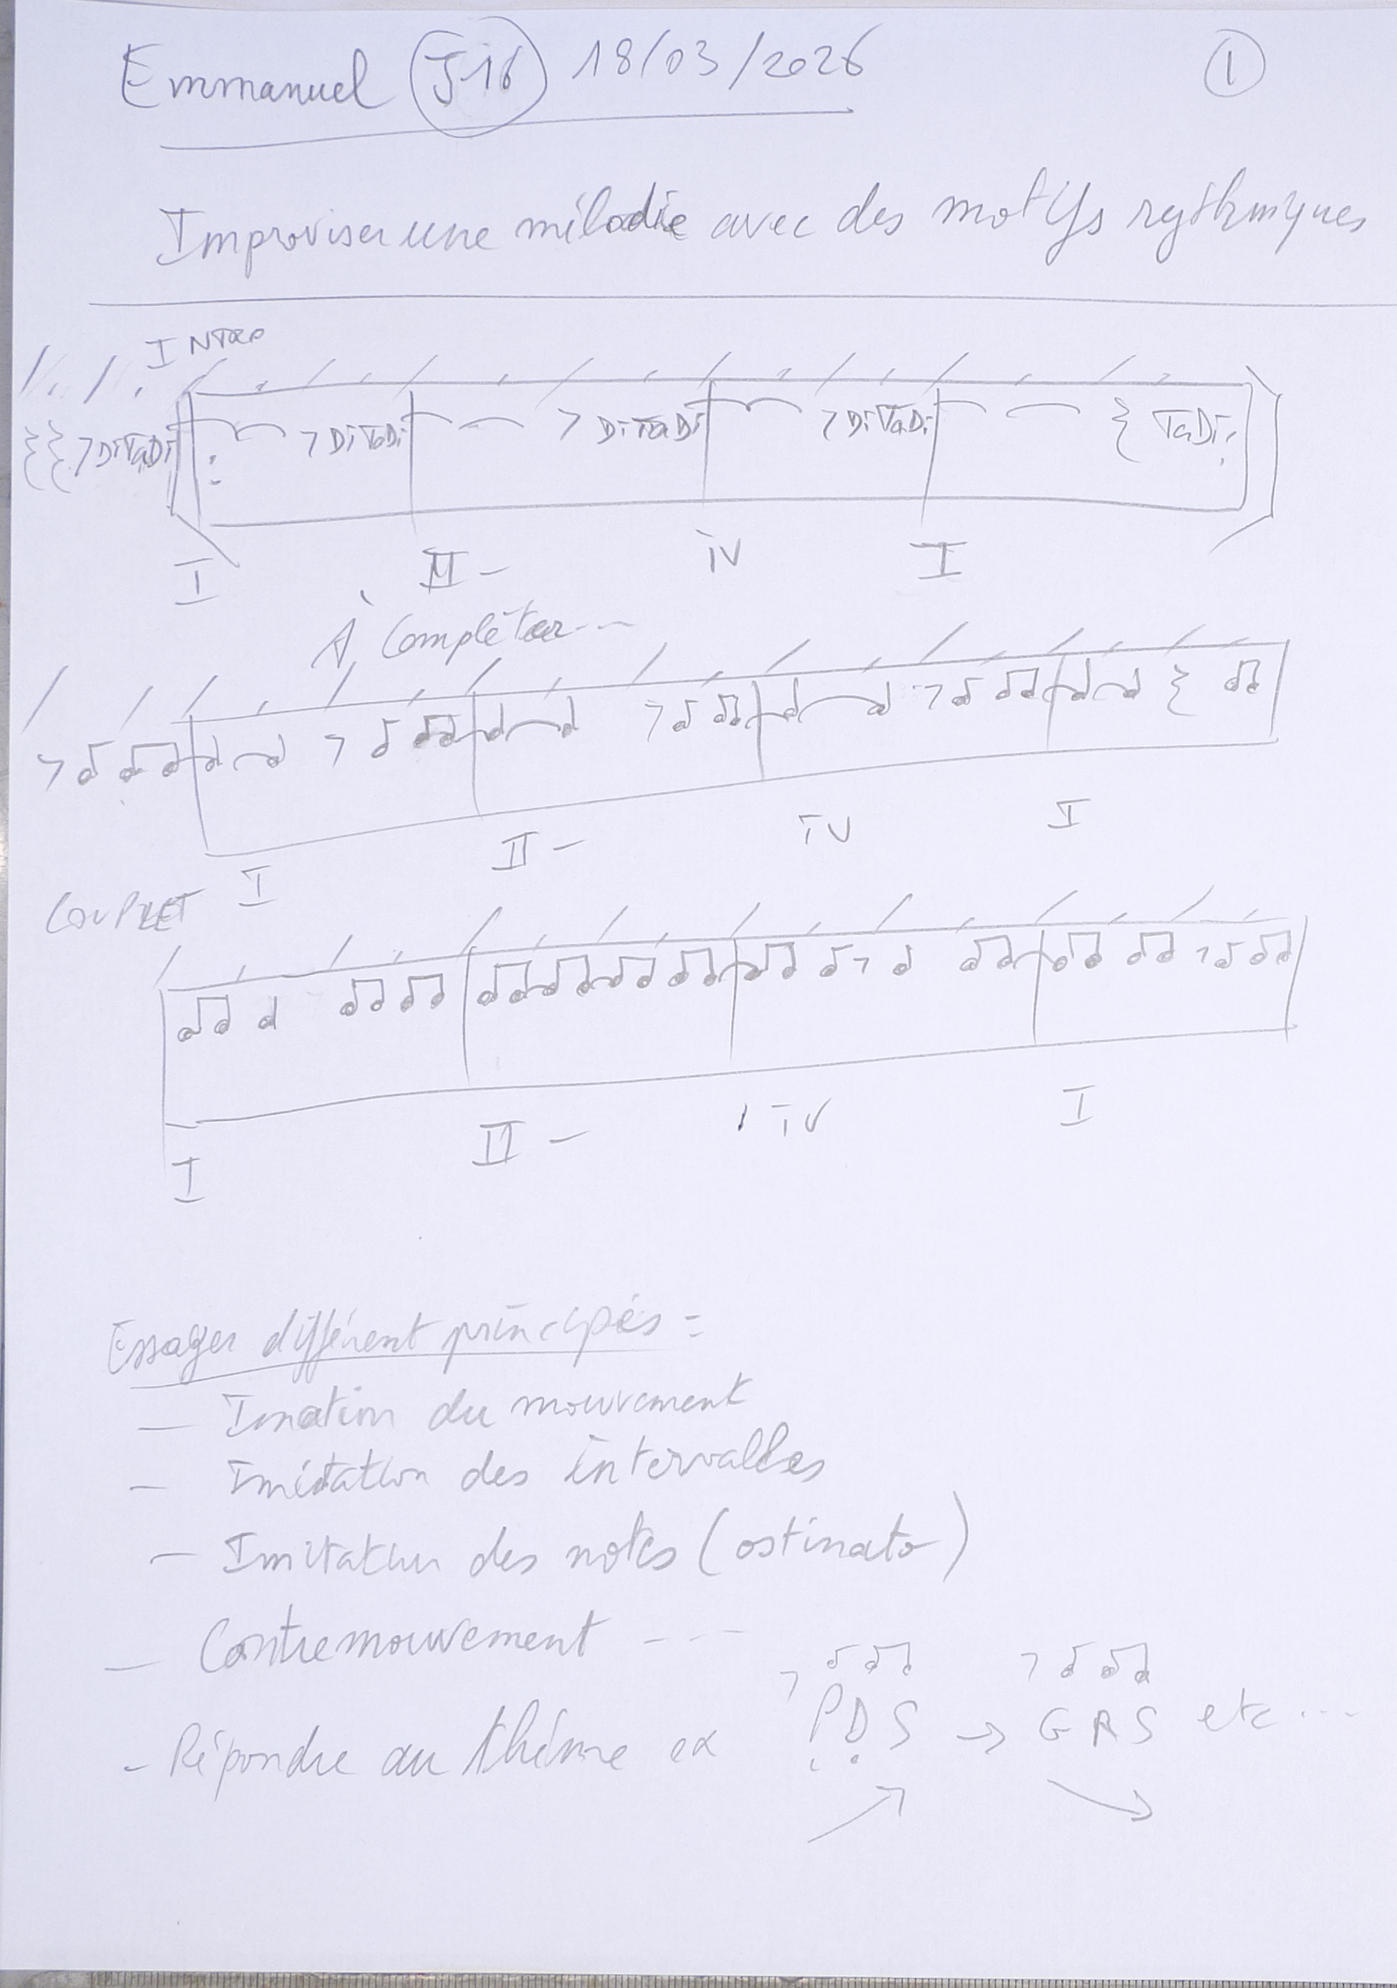 Emmanuel J-16 18/03/2026 1
Improviser une mélodie avec des motifs rythmiques
INTRO
DiTaDi DiTaDi DiTaDi DiTaDi TaDi
I II - IV I
À Compléter ---
I II - IV I
COUPLET
I II - IV I
Essayer différent principes =
— Imation du mouvement
— Imitation des intervalles
— Imitation des notes (ostinato)
— Contremouvement ---
- Répondre au thème ex P D S → G R S etc ...